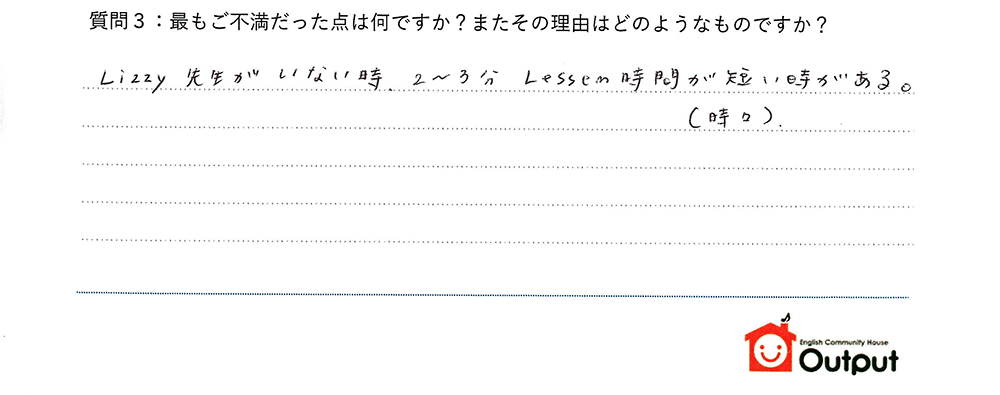 質問３：最もご不満だった点は何ですか？またその理由はどのようなものですか？
Lizzy 先生が いない時、2〜3分 Lessen 時間が 短い時がある。
(時々).
English Community House
Output